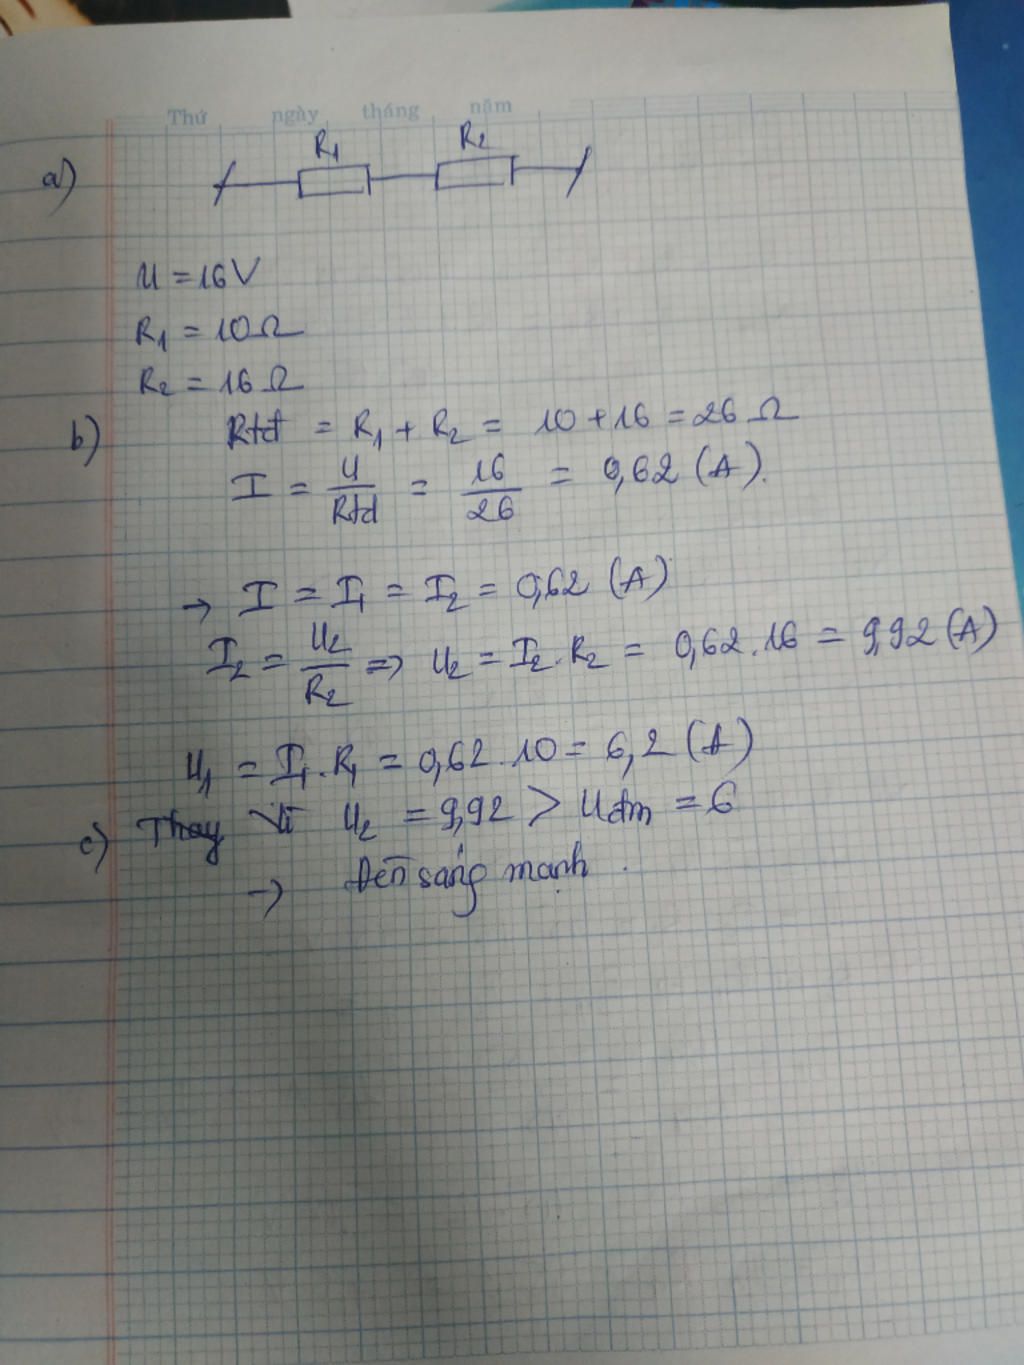 Thứ ngày tháng năm
a)
R₁ R₂
U = 16V
R₁ = 10Ω
R₂ = 16Ω
b) Rtđ = R₁ + R₂ = 10 + 16 = 26 Ω
I = U/Rtđ = 16/26 = 0,62 (A).
→ I = I₁ = I₂ = 0,62 (A)
I₂ = U₂/R₂ => U₂ = I₂.R₂ = 0,62.16 = 9,92 (A)
U₁ = I₁.R₁ = 0,62.10 = 6,2 (A)
c) Thay Vì U₂ = 9,92 > Uđm = 6
→ Đèn sáng mạnh.